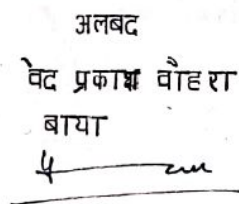 अलबद
वेद प्रकाश वौहरा
बाया